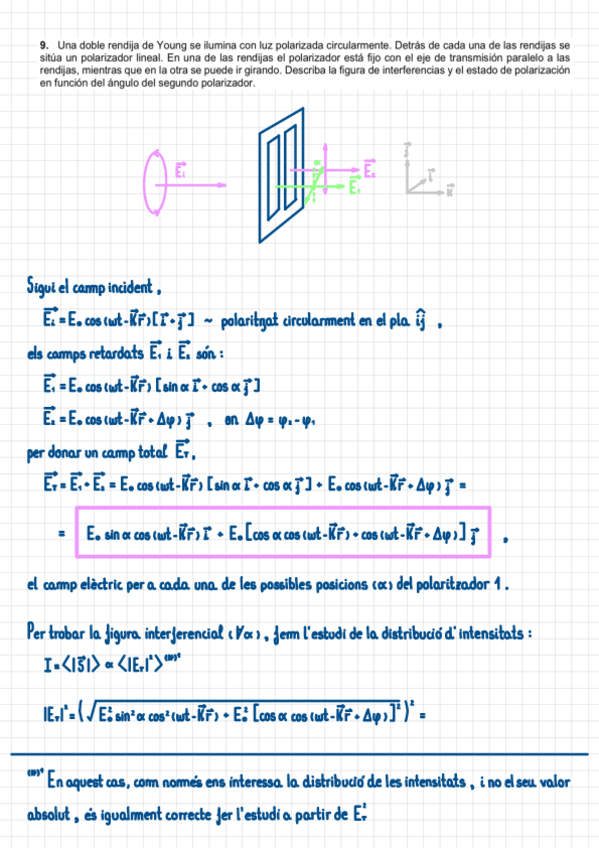 9. Una doble rendija de Young se ilumina con luz polarizada circularmente. Detrás de cada una de las rendijas se
sitúa un polarizador lineal. En una de las rendijas el polarizador está fijo con el eje de transmisión paralelo a las
rendijas, mientras que en la otra se puede ir girando. Describa la figura de interferencias y el estado de polarización
en función del ángulo del segundo polarizador.
E⃗i
α
E⃗₂
E⃗₁
j⃗
i⃗
k⃗
Sigui el camp incident,
E⃗i = E₀ cos(ωt-K⃗r⃗)[i⃗+j⃗] ~ polaritzat circularment en el pla îj,
els camps retardats E⃗₁ i E⃗₂ són:
E⃗₁ = E₀ cos(ωt-K⃗r⃗) [sin α i⃗ + cos α j⃗]
E⃗₂ = E₀ cos(ωt-K⃗r⃗ + Δφ) j⃗ , on Δφ = φ₂ - φ₁
per donar un camp total E⃗T,
E⃗T = E⃗₁ + E⃗₂ = E₀ cos(ωt-K⃗r⃗) [sin α i⃗ + cos α j⃗] + E₀ cos(ωt-K⃗r⃗ + Δφ) j⃗ =
= E₀ sin α cos(ωt-K⃗r⃗) i⃗ + E₀ [cos α cos(ωt-K⃗r⃗) + cos(ωt-K⃗r⃗ + Δφ)] j⃗ ,
el camp elèctric per a cada una de les possibles posicions (α) del polaritzador 1.
Per trobar la figura interferencial (∀α), fem l'estudi de la distribució d'intensitats:
I = <|S⃗|> ∝ <|ET|²>
|ET|² = (√E₀² sin² α cos²(ωt-K⃗r⃗) + E₀² [cos α cos(ωt-K⃗r⃗ + Δφ)]²)² =
En aquest cas, com només ens interessa la distribució de les intensitats, i no el seu valor
absolut, és igualment correcte fer l'estudi a partir de ET²